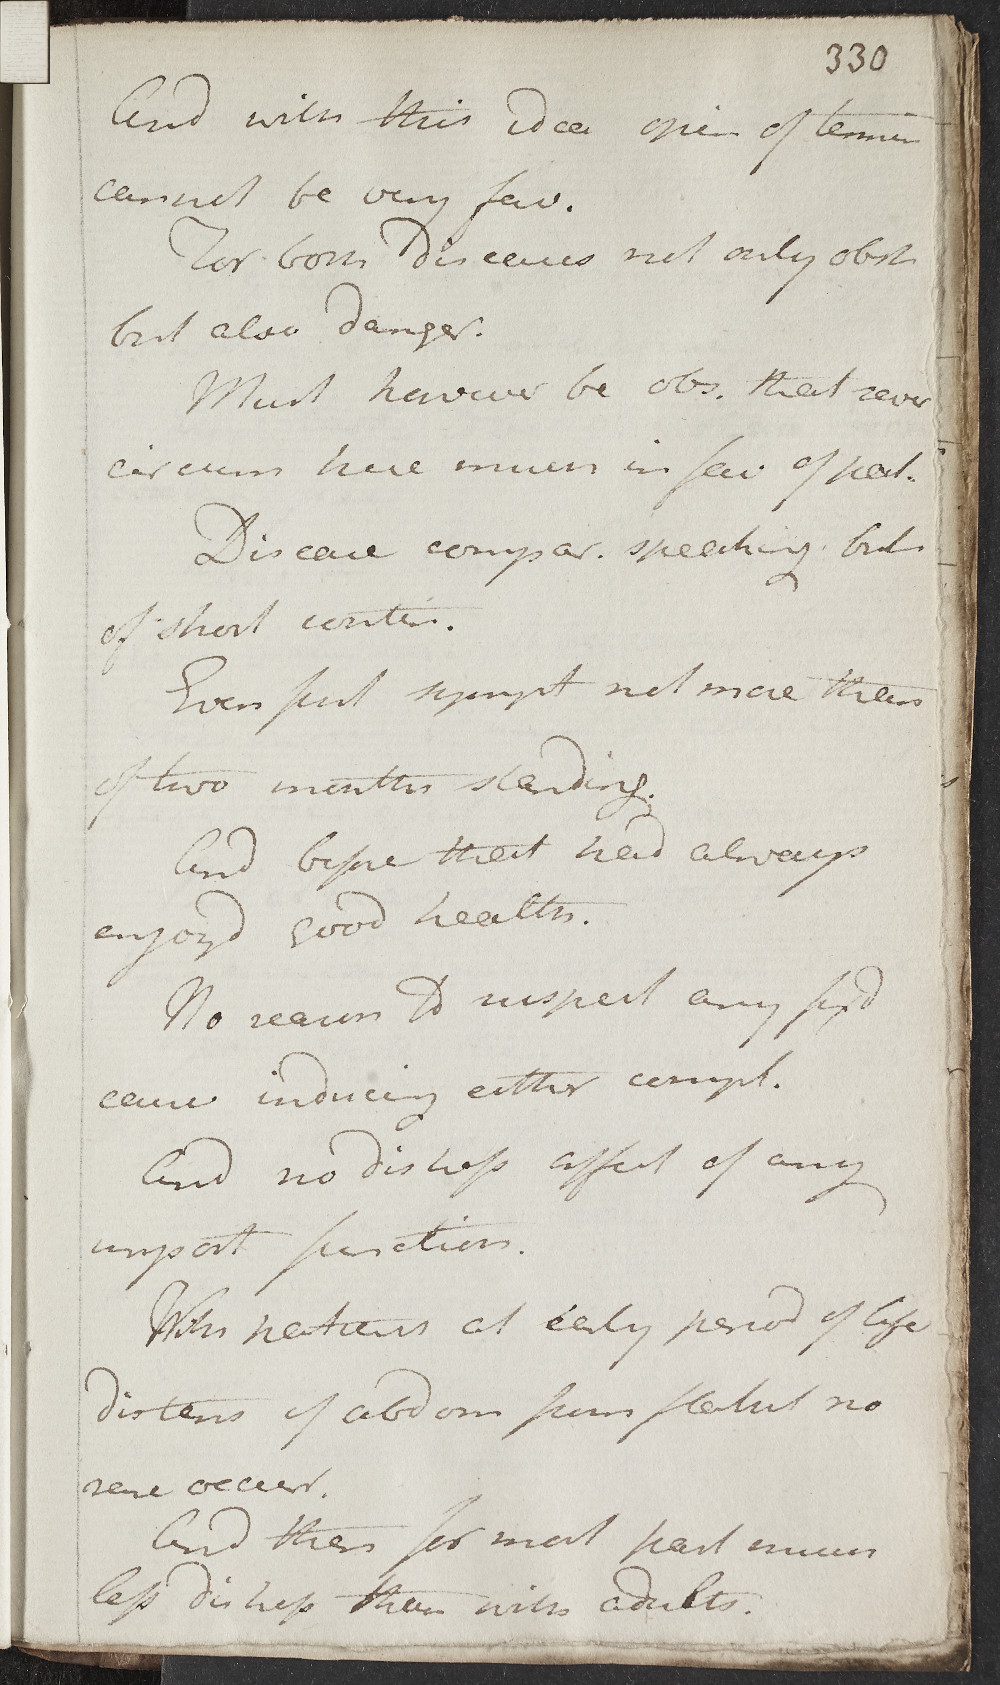 330
And with this idea opin of termin
cannot be very fav.
For both Diseases not only obst
but also Danger.
Must however be obs. that sever
circum here much in fav of pat.
Disease compar. speaking but
of short contin.
Even first sympt not more than
of two months standing.
And before that had always
enjoyd good health.
No reason to suspect any fixd
cause inducing either compl.
And no distress affect of any
import function.
With patients at early period of life
distens of abdom from flatul no
rare occurr.
And then for most part much
less distress than with adults.